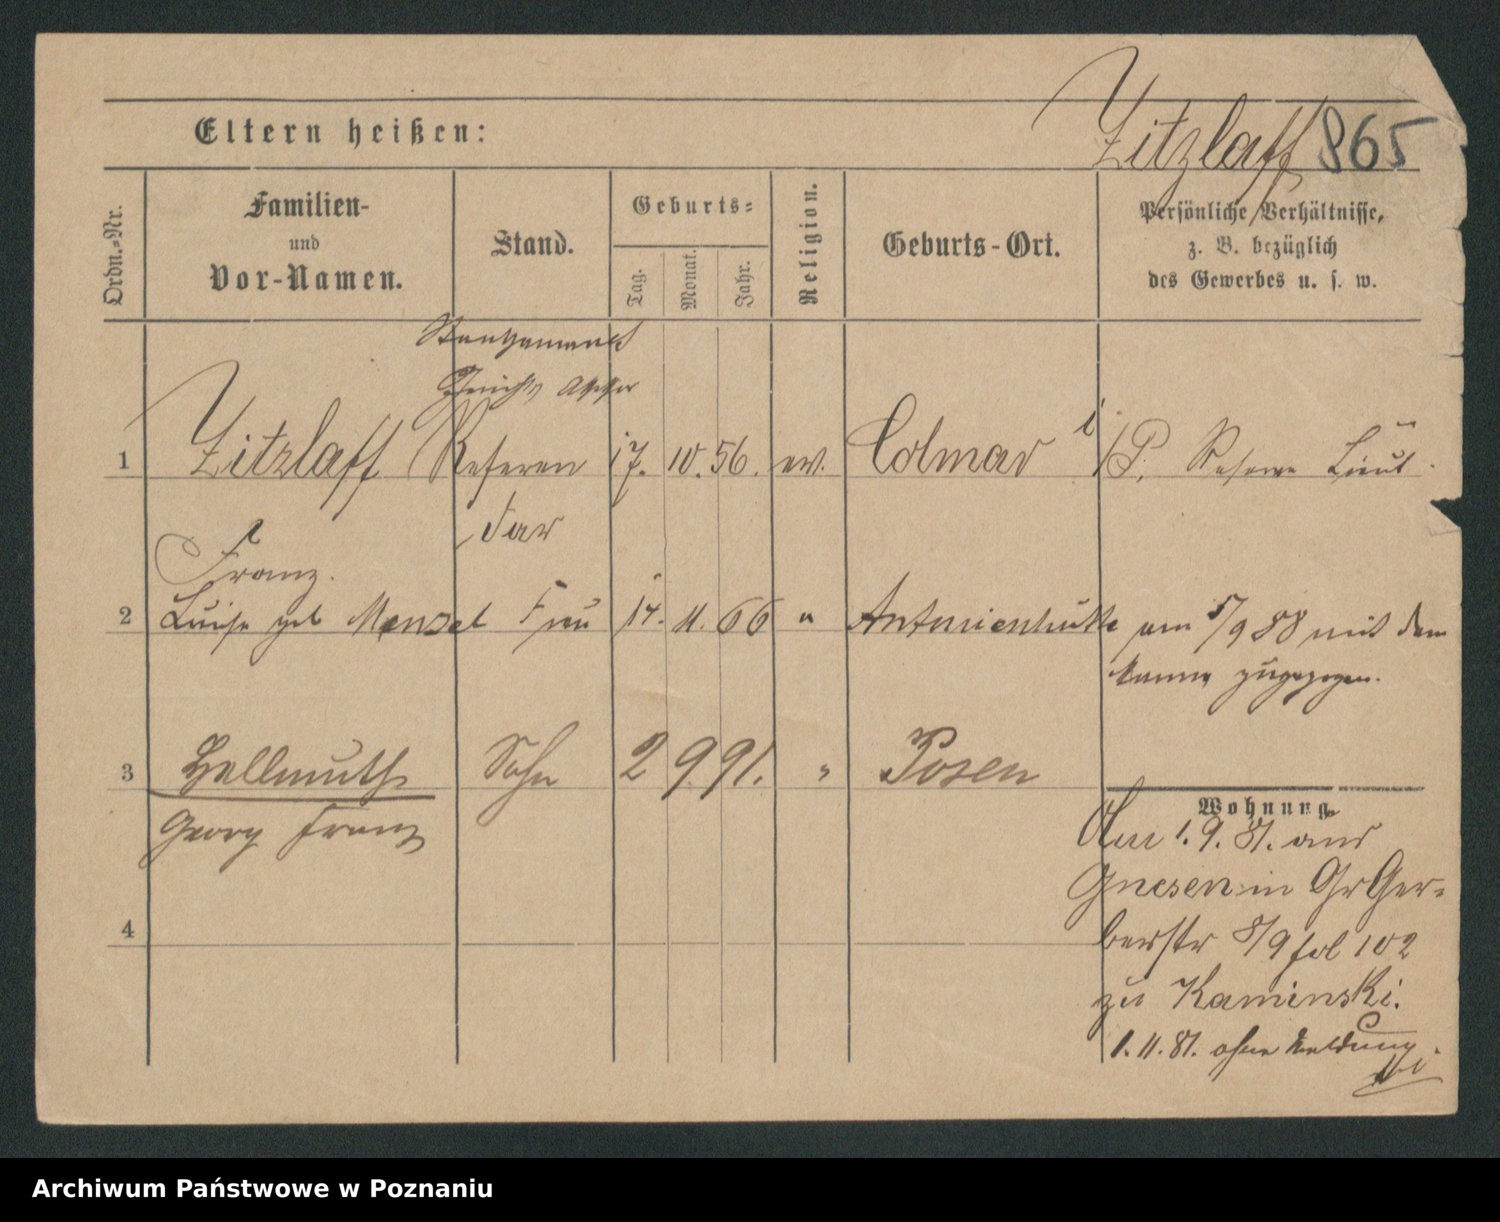 Zitzlaff 865
Eltern heißen:
Ordn.-Nr.
Familien-
und
Vor-Namen.
Stand.
Geburts-
Tag.
Monat.
Jahr.
Religion.
Geburts-Ort.
Persönliche Verhältnisse,
z. B. bezüglich
des Gewerbes u. s. w.
1 Zitzlaff Referen 17. 10. 56. ev. Colmar i/P. Reserve Lieut.
dar
Franz.
2 Luise geb Menzel Frau 14. 11. 66 " Antonienhütte am 5/9 88 mit dem
Manne zugezogen.
3 Hellmuth Sohn 2 9 91. " Posen
Georg Franz
Wohnung.
Am 1. 9. 81. aus
Gnesen in Gr Ger-
berstr 8/9 fol 102
zu Kaminski.
1. 11. 81. ohne Meldung.
4
Archiwum Państwowe w Poznaniu